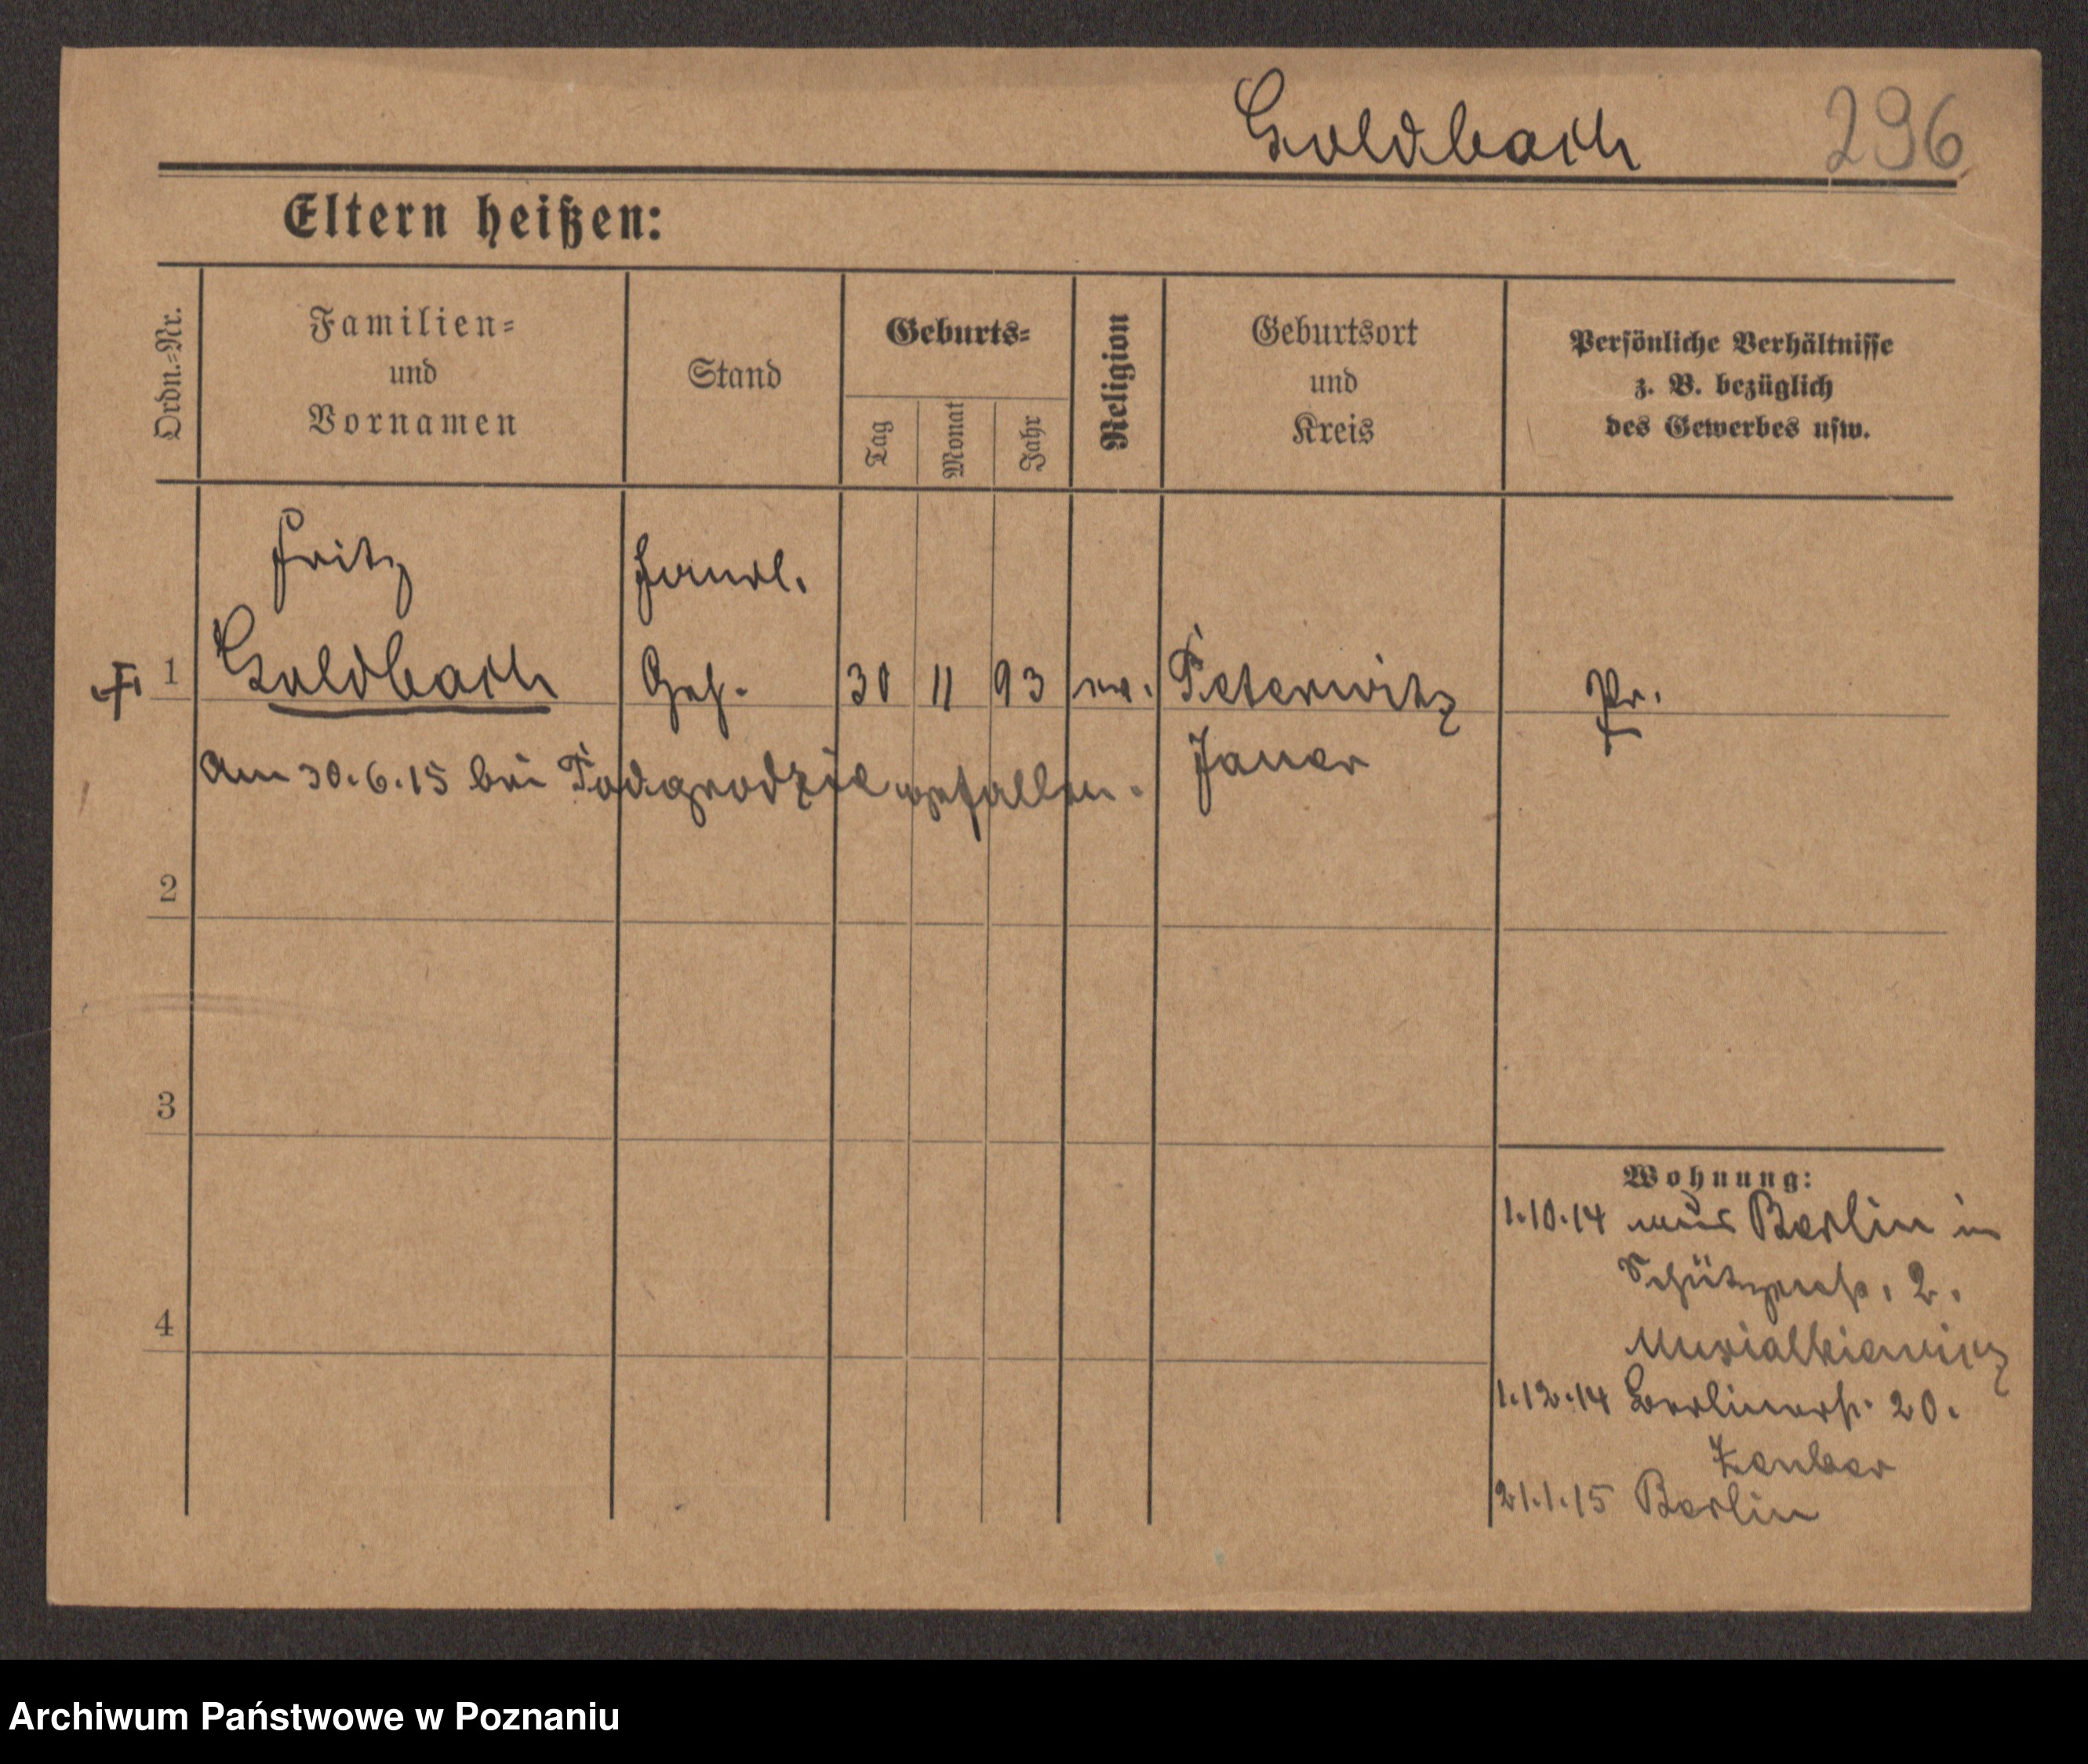 Goldbach 296
Eltern heißen:
Ordn.=Nr.
Familien=
und
Vornamen
Stand
Geburts=
Tag
Monat
Jahr
Religion
Geburtsort
und
Kreis
Persönliche Verhältnisse
z. B. bezüglich
des Gewerbes usw.
Fritz Handl.
1 Goldbach Geh. 30 11 93 ev. Peterwitz Pr.
Jauer
Am 30.6.15 bei Podgrodzie gefallen.
2
3
4
Wohnung:
1.10.14 aus Berlin in
Schützenstr. 2.
Musialkiewicz
1.12.14 Berlinerstr. 20.
21.1.15 Berlin
Archiwum Państwowe w Poznaniu